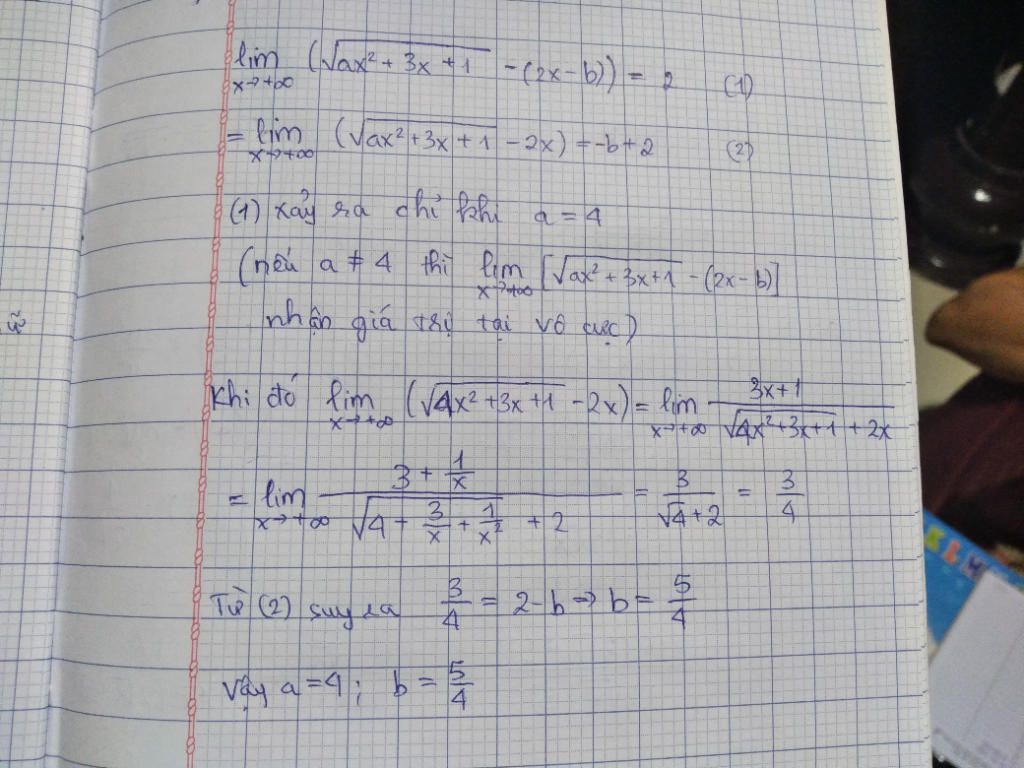 lim x→+∞ (√(ax² + 3x + 1) - (2x - b)) = 2 (1)
= lim x→+∞ (√(ax² + 3x + 1) - 2x) = -b + 2 (2)
(1) xảy ra chỉ khi a = 4
(nếu a ≠ 4 thì lim x→+∞ [√(ax² + 3x + 1) - (2x - b)]
nhận giá trị tại vô cực)
Khi đó lim x→+∞ (√(4x² + 3x + 1) - 2x) = lim x→+∞ (3x + 1)/(√(4x² + 3x + 1) + 2x)
= lim x→+∞ (3 + 1/x)/(√(4 + 3/x + 1/x²) + 2) = 3/(√4 + 2) = 3/4
Từ (2) suy ra 3/4 = 2 - b ⇒ b = 5/4
Vậy a = 4; b = 5/4